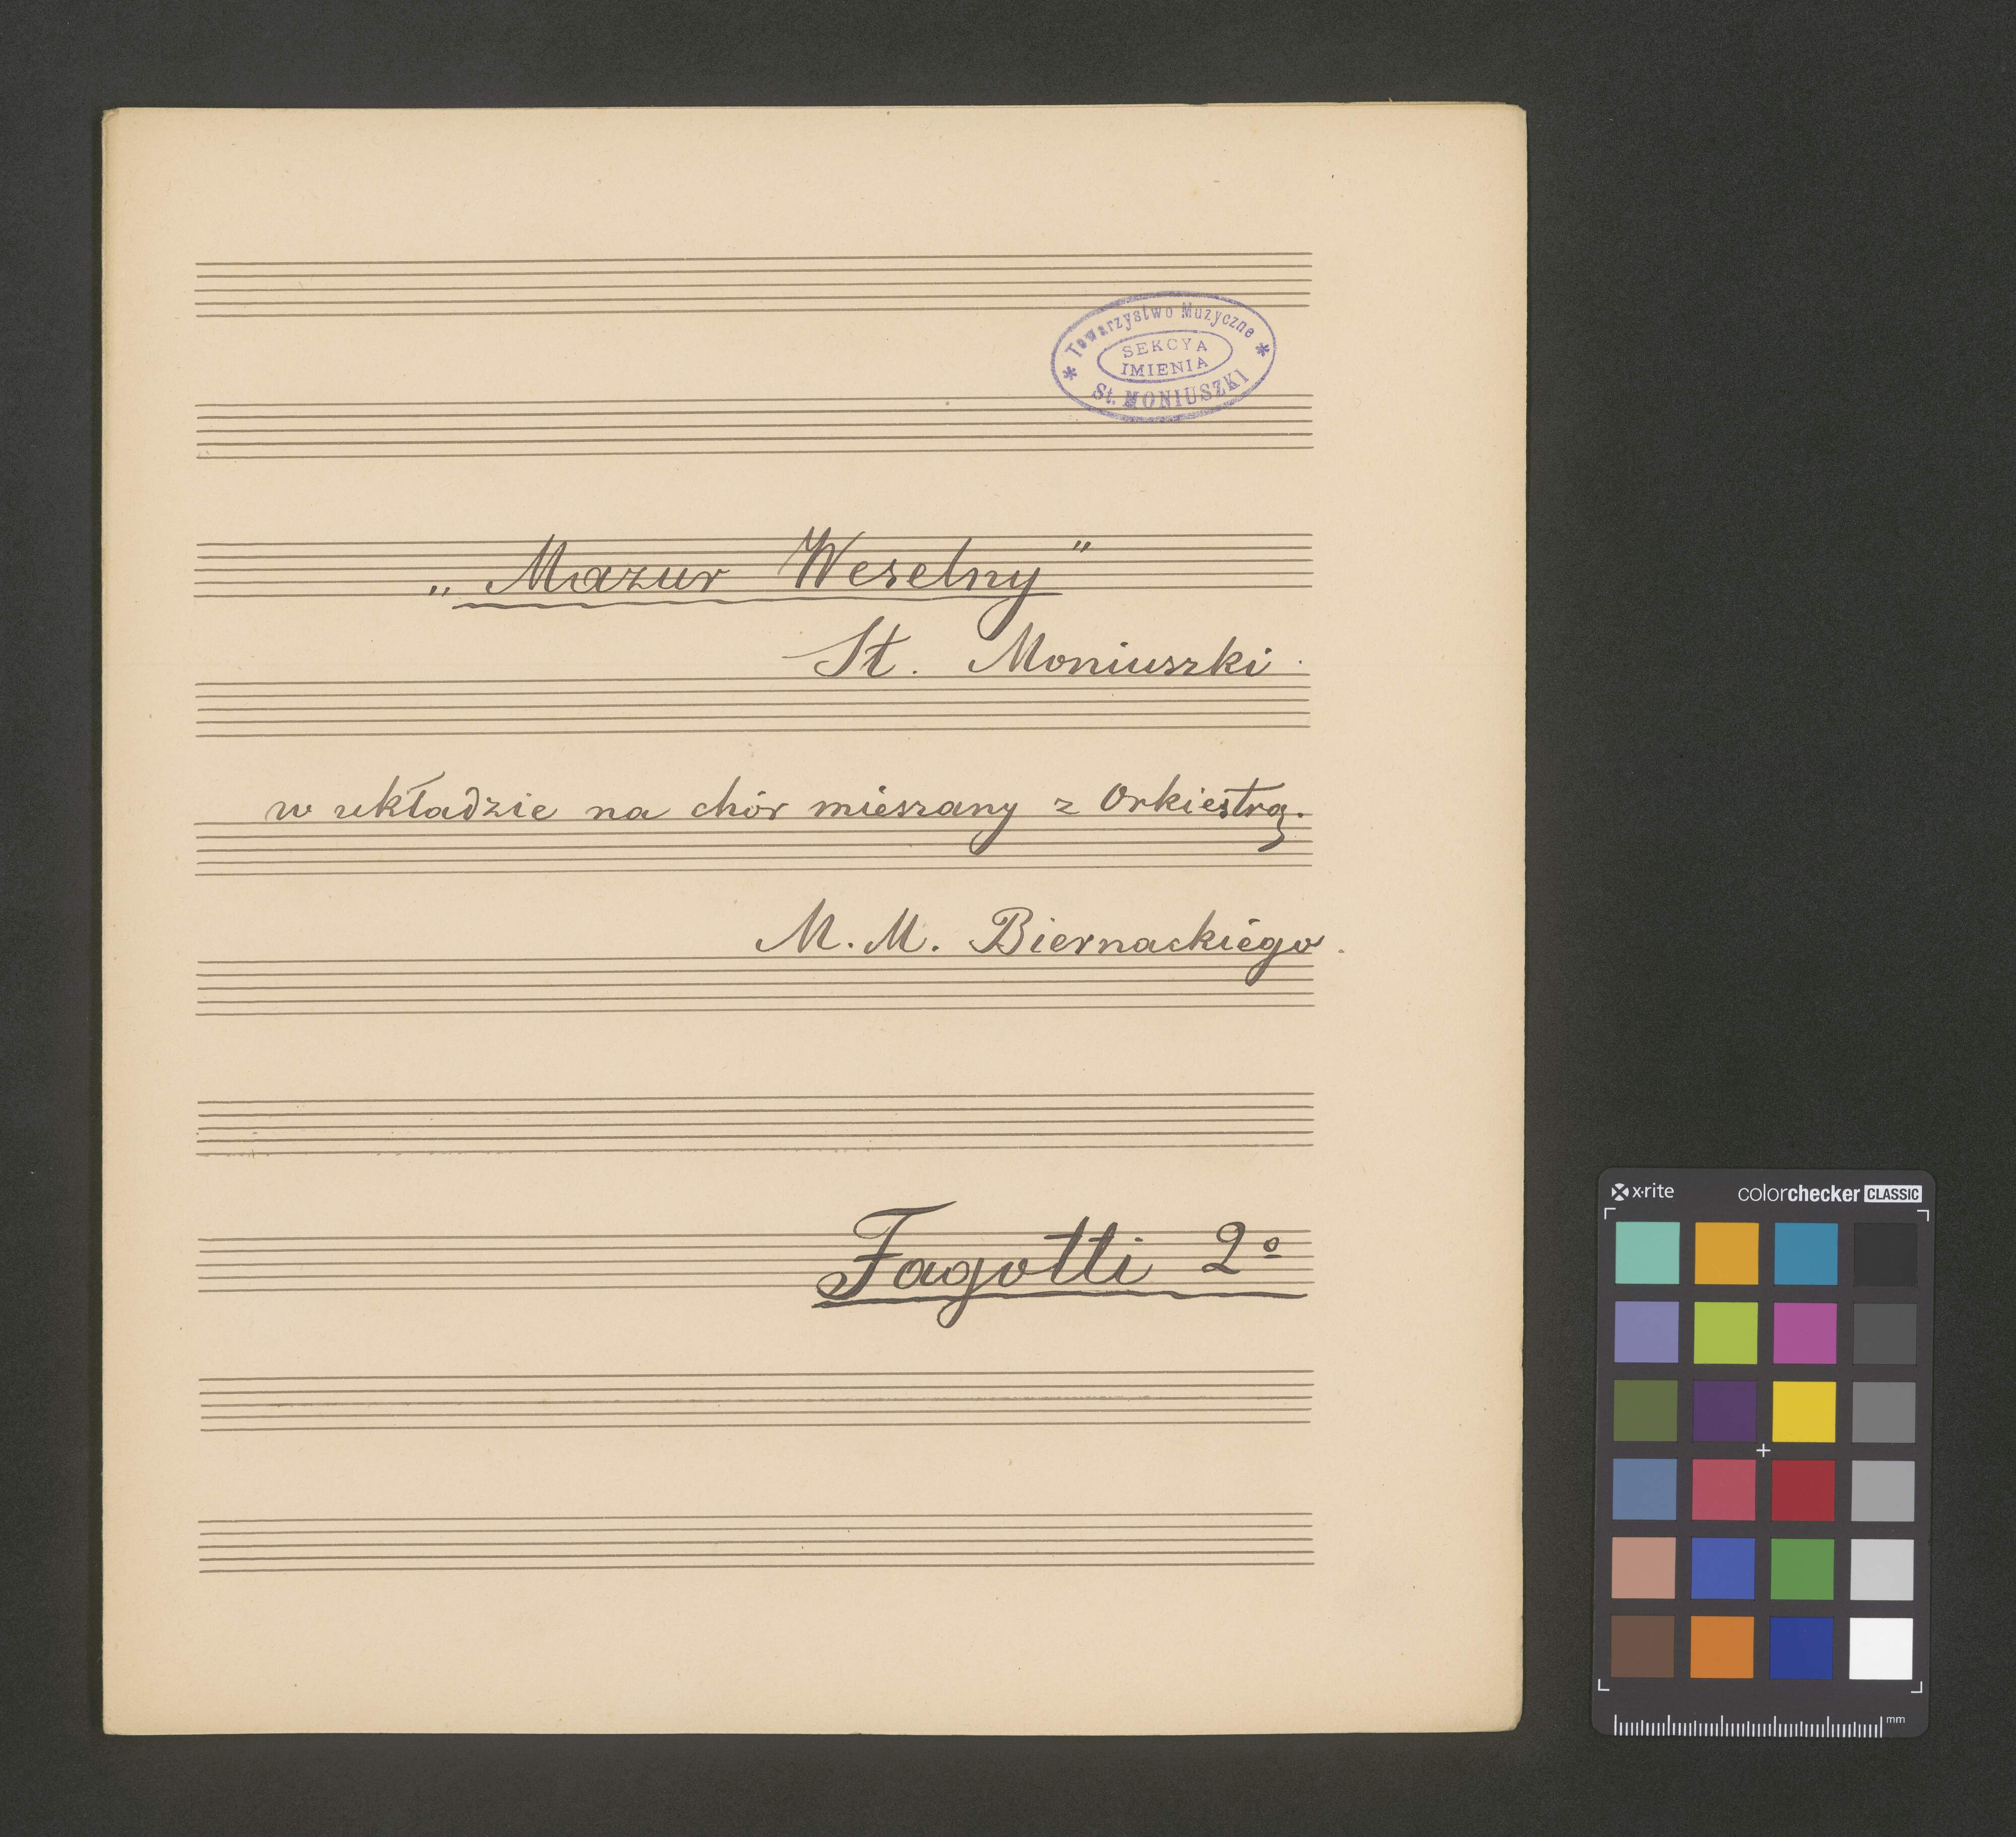 Towarzystwo Muzyczne
SEKCYA
IMIENIA
St. MONIUSZKI
„Mazur Weselny”
St. Moniuszki.
w układzie na chór mieszany z Orkiestrą.
M. M. Biernackiégo.
Fagotti 2º
x·rite colorchecker CLASSIC
mm